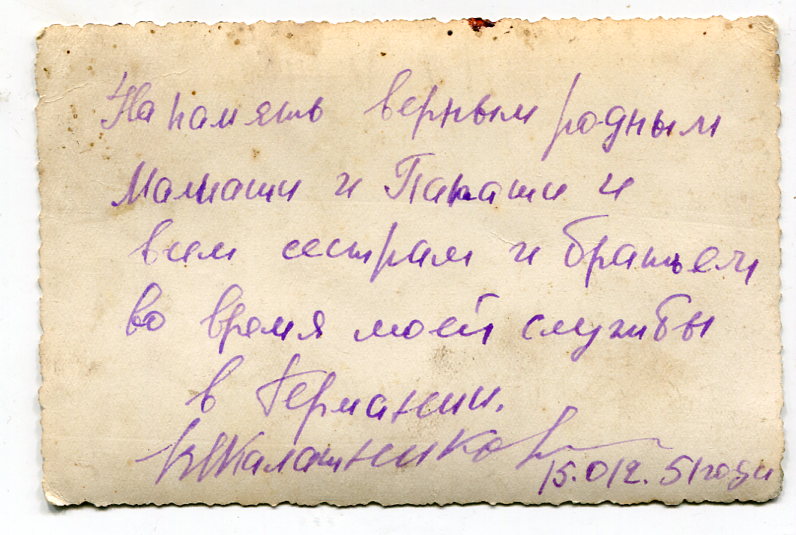 На память верным родным
Мамаши и Папаши и
всем сестрам и братьем
во время моей службы
в Германии.
Калашников 15.012.51 годи